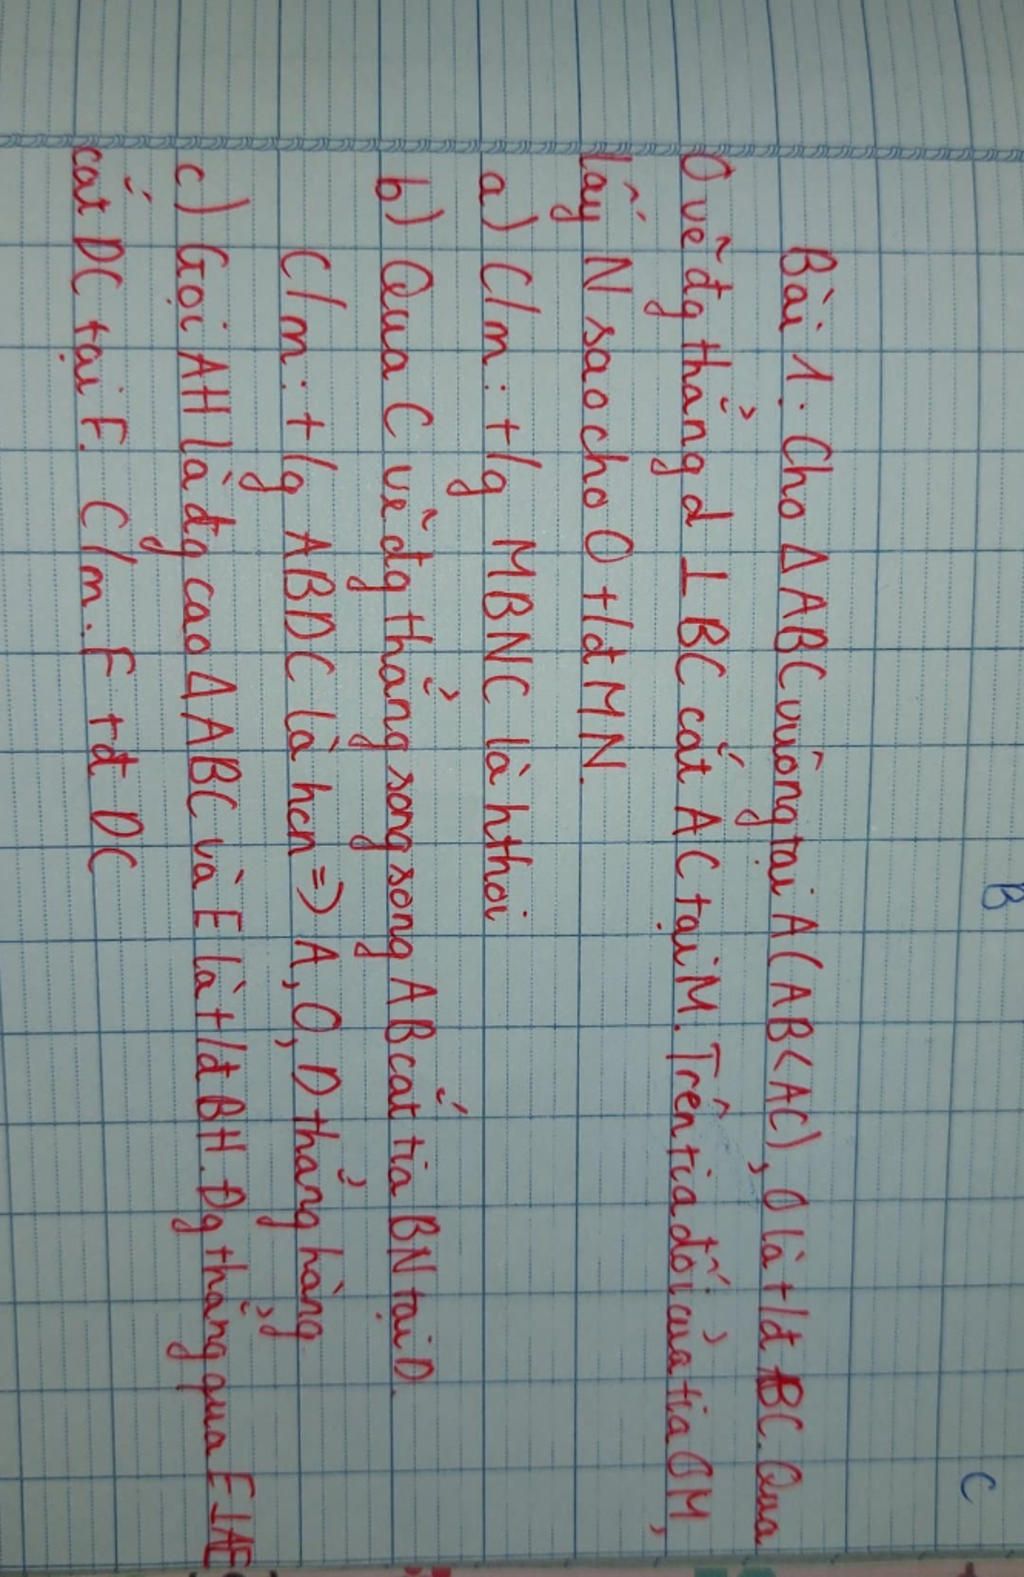 B
C
Bài 1: Cho Δ ABC vuông tại A (AB < AC), O là t/đ BC. Qua
O vẽ đg thẳng d ⊥ BC cắt AC tại M. Trên tia đối của tia OM,
lấy N sao cho O t/đ MN.
a) C/m: t/g MBNC là hthoi
b) Qua C vẽ đg thẳng song song AB cắt tia BN tại D.
C/m: t/g ABDC là hcn => A, O, D thẳng hàng
c) Gọi AH là đg cao Δ ABC và E là t/đ BH. Đg thẳng qua E ⊥ AE
cắt DC tại F. C/m: F tđ DC